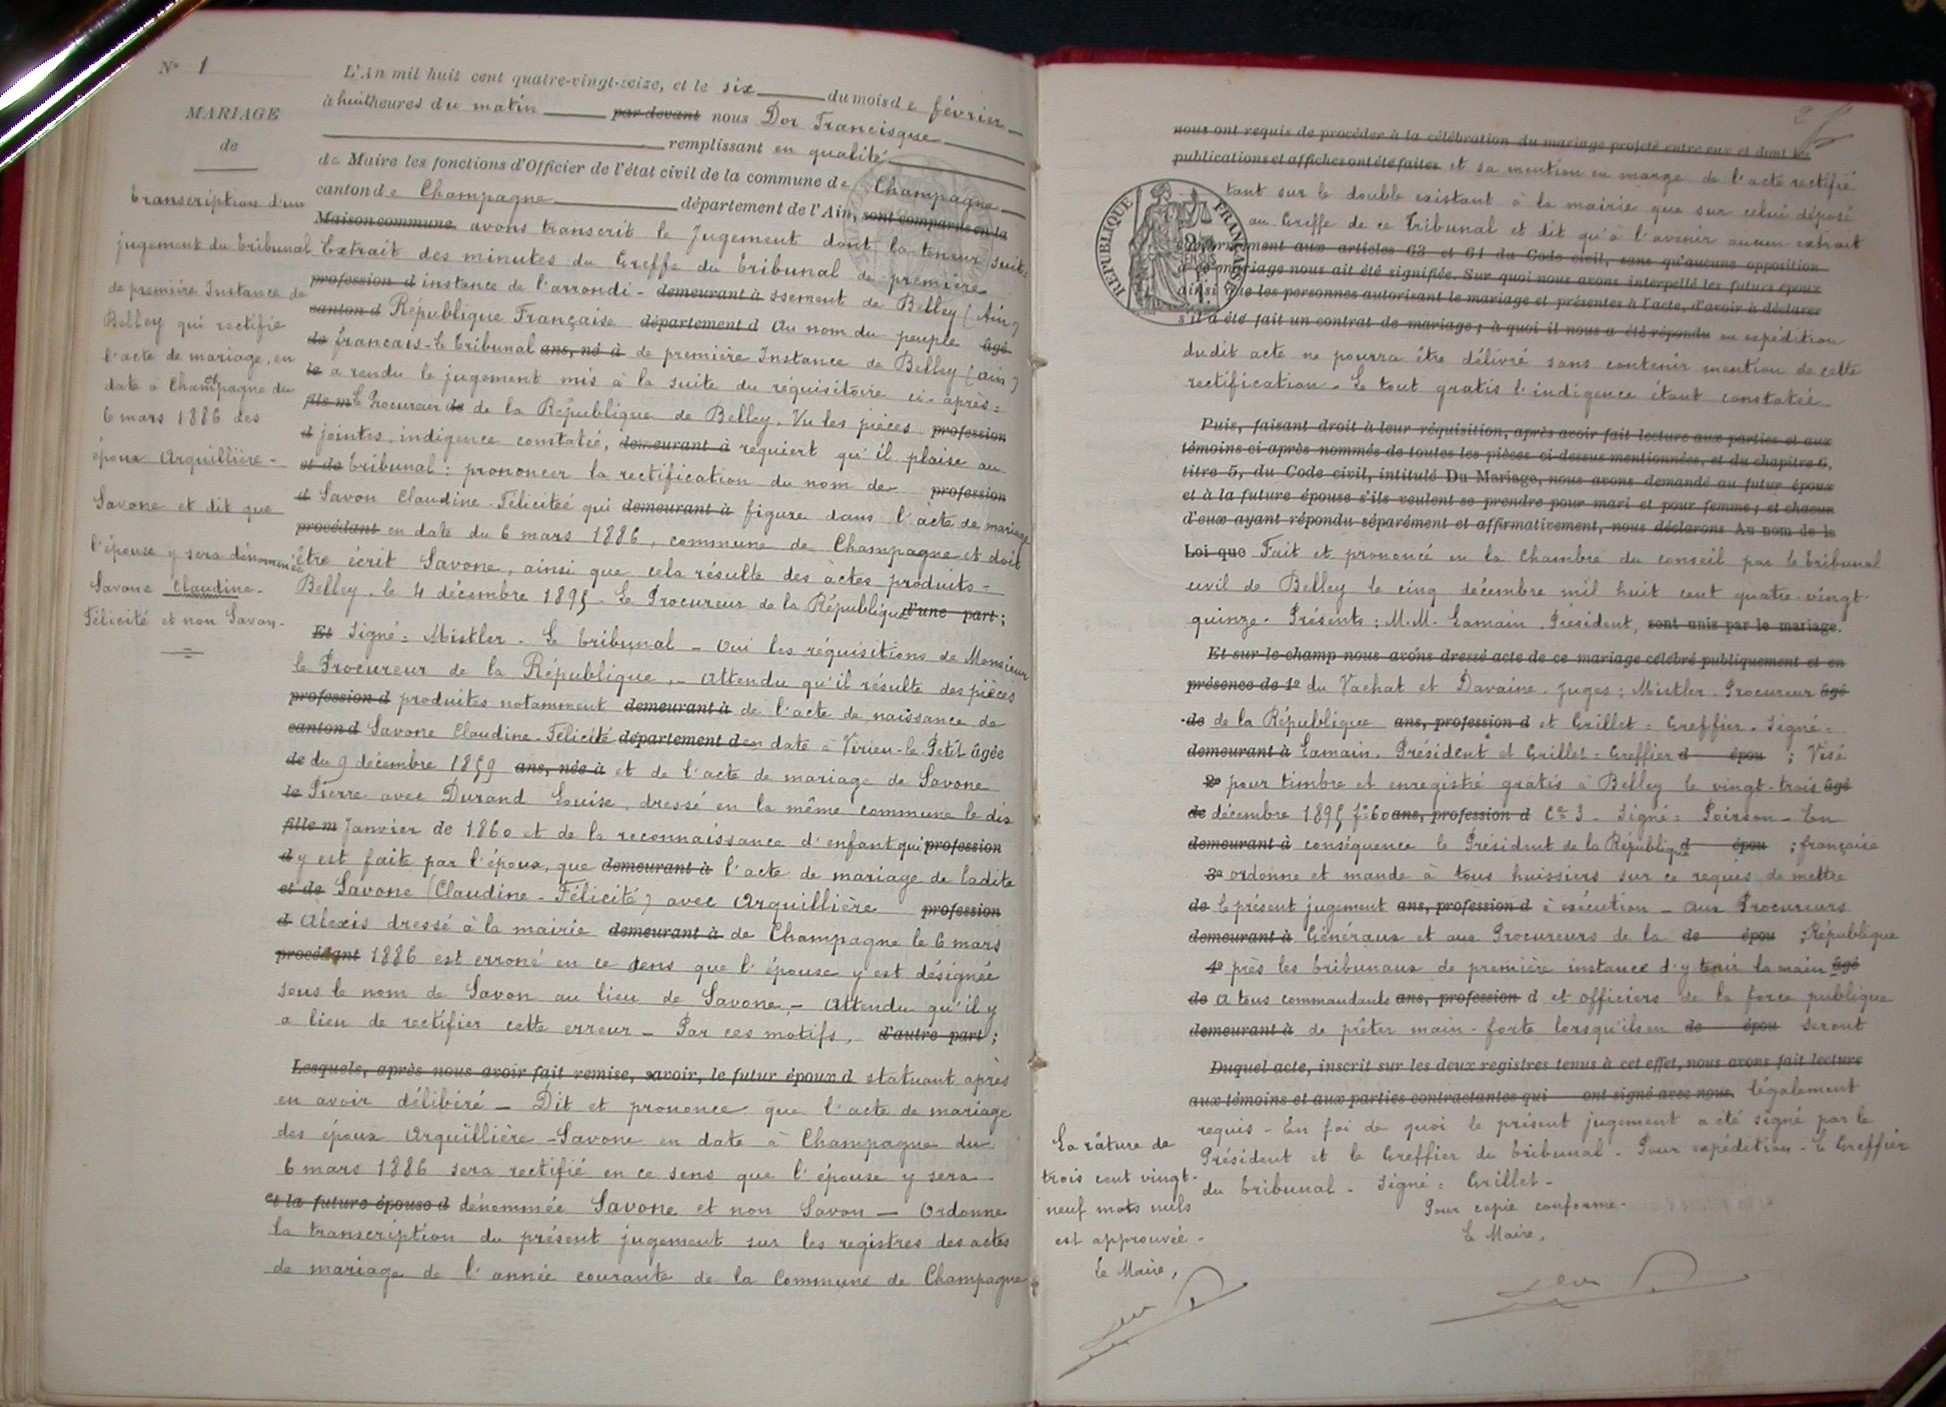 N° 1
MARIAGE
de
Transcription d'un
jugement du Tribunal
de première Instance de
Belley qui rectifie
l'acte de mariage, en
date à Champagne du
6 mars 1886 des
époux Arquillière-
Savone et dit que
l'épouse y sera dénommée
Savone Claudine-
Félicité et non Savon-
L'An mil huit cent quatre-vingt-seize, et le six du mois de février
à huit heures du matin par devant nous Dor Francisque
remplissant en qualité
de Maire les fonctions d'Officier de l'état civil de la commune de Champagne
canton de Champagne département de l'Ain, sont comparus en la
Maison commune avons transcrit le Jugement dont la teneur suit:
Extrait des minutes du Greffe du Tribunal de première
profession d instance de l'arrondi- demeurant à ssement de Belley (Ain)
canton d République Française département d Au nom du peuple âgé
de francais - Le Tribunal ans, né à de première Instance de Belley (ain)
le a rendu le jugement mis à la suite du réquisitoire ci-après:
fils m Le Procureur de de la République de Belley. Vu les pièces profession
d jointes, indigence constatée, demeurant à requiert qu'il plaise au
et de Tribunal: prononcer la rectification du nom de profession
d Savon Claudine-Félicitée qui demeurant à figure dans l'acte de mariage
procédant en date du 6 mars 1886, commune de Champagne et doit
être écrit Savone, ainsi que cela résulte des actes produits -
Belley, le 4 décembre 1895 - Le Procureur de la République d'une part;
Et Signé: Mistler - Le Tribunal - Oui les réquisitions de Monsieur
le Procureur de la République, - Attendu qu'il résulte des pièces
profession d produites notamment demeurant à de l'acte de naissance de
canton d Savone Claudine-Félicité département d en date à Virieu-le-Petit âgée
de du 9 décembre 1859 ans, née à et de l'acte de mariage de Savone
le Pierre avec Durand Louise, dressé en la même commune le dix
fille m Janvier de 1860 et de la reconnaissance d'enfant qui profession
d y est faite par l'époux, que demeurant à l'acte de mariage de ladite
et de Savone (Claudine-Félicité) avec Arquillière profession
d Alexis dressé à la mairie demeurant à de Champagne le 6 mars
procédant 1886 est erroné en ce sens que l'épouse y est désignée
sous le nom de Savon au lieu de Savone, - Attendu qu'il y
a lieu de rectifier cette erreur - Par ces motifs, d'autre part;
Lesquels, après nous avoir fait remise, savoir, le futur époux d statuant après
en avoir délibéré - Dit et prononce que l'acte de mariage
des époux Arquillière-Savone en date à Champagne du
6 mars 1886 sera rectifié en ce sens que l'épouse y sera
et la future épouse d dénommée Savone et non Savon - Ordonne
la transcription du présent jugement sur les registres des actes
de mariage de l'année courante de la Commune de Champagne
2
nous ont requis de procéder à la célébration du mariage projeté entre eux et dont les
publications et affiches ont été faites et sa mention en marge de l'acte rectifié
tant sur le double existant à la mairie que sur celui déposé
au Greffe de ce Tribunal et dit qu'à l'avenir aucun extrait
conformément aux articles 63 et 64 du Code civil, sans qu'aucune opposition
à ce mariage nous ait été signifiée. Sur quoi nous avons interpellé les futurs époux
ainsi que les personnes autorisant le mariage et présentes à l'acte, d'avoir à déclarer
s'il a été fait un contrat de mariage; à quoi il nous a été répondu ou expédition
RÉPUBLIQUE FRANÇAISE
dudit acte ne pourra être délivré sans contenir mention de cette
rectification - Le tout gratis l'indigence étant constatée
Puis, faisant droit à leur réquisition, après avoir fait lecture aux parties et aux
témoins ci-après nommés de toutes les pièces ci-dessus mentionnées, et du chapitre 6,
titre 5, du Code civil, intitulé Du Mariage, nous avons demandé au futur époux
et à la future épouse s'ils veulent se prendre pour mari et pour femme; et chacun
d'eux ayant répondu séparément et affirmativement, nous déclarons Au nom de la
Loi que Fait et prononcé en la Chambre du conseil par le Tribunal
civil de Belley le cinq décembre mil huit cent quatre-vingt-
quinze. Présents: M.M. Lamain, Président, sont unis par le mariage.
Et sur-le-champ nous avons dressé acte de ce mariage célébré publiquement et en
présence de 1° du Vachat et Davaine, Juges; Mistler, Procureur âgé
de de la République ans, profession d et Grillet = Greffier. Signé =
demeurant à Lamain, Président et Grillet = Greffier d épou ; Visé
2° pour timbre et enregistré gratis à Belley le vingt-trois âgé
de décembre 1895 f° 60 ans, profession d Ce 3 - Signé: Poirson - En
demeurant à conséquence le Président de la République d épou ; française
3° ordonne et mande à tous huissiers sur ce requis de mettre
de le présent jugement ans, profession d à exécution - aux Procureurs
demeurant à Généraux et aux Procureurs de la de épou ; République
4° près les tribunaux de première instance d'y tenir la main âgé
de A tous commandants ans, profession d et officiers de la force publique
demeurant à de prêter main-forte lorsqu'ils en de épou seront
Duquel acte, inscrit sur les deux registres tenus à cet effet, nous avons fait lecture
aux témoins et aux parties contractantes qui ont signé avec nous. légalement
requis - En foi de quoi le présent jugement a été signé par le
Président et le Greffier du Tribunal - Pour expédition - Le Greffier
du Tribunal - Signé: Grillet -
Pour copie conforme -
Le Maire,
La râture de
trois cent vingt-
neuf mots nuls
est approuvée -
Le Maire,